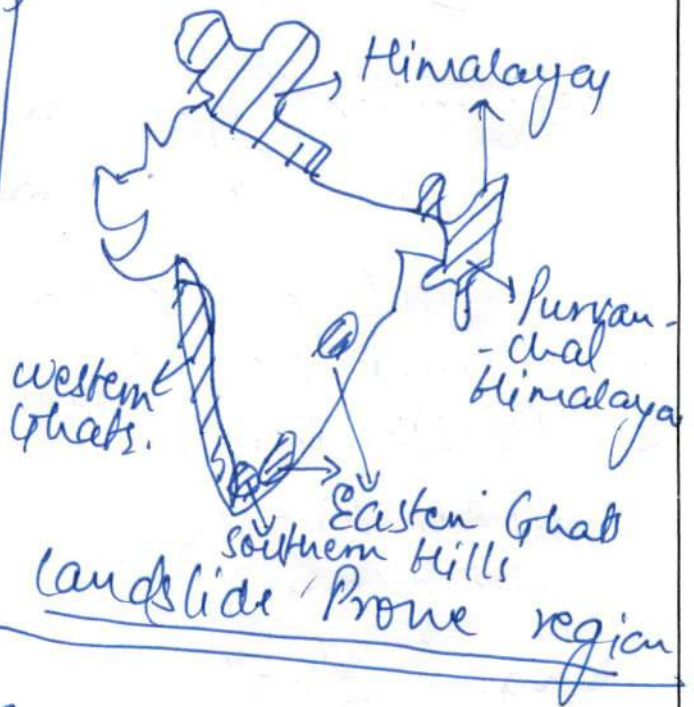 Himalayas
Purvan-
-chal
Himalaya
western
Ghats.
Eastern Ghats
southern Hills
Landslide Prone region